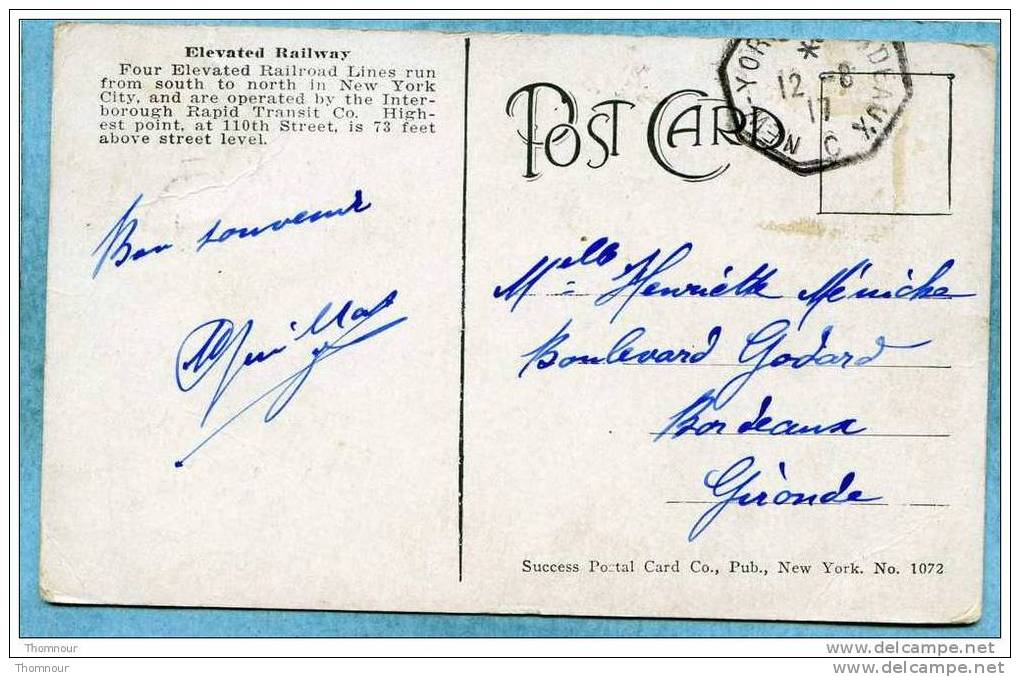 Elevated Railway
Four Elevated Railroad Lines run
from south to north in New York
City, and are operated by the Inter-
borough Rapid Transit Co. High-
est point, at 110th Street, is 73 feet
above street level.
Bon souvenir
POST CARD
NEW-YORK
12 -8
17
C
Melle Henriette Méniche
Boulevard Godard
Bordeaux
Gironde
Success Postal Card Co., Pub., New York. No. 1072
Thomnour
www.delcampe.net
Thomnour
www.delcampe.net